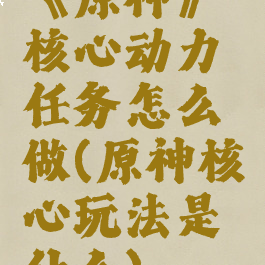 《原神》
核心动力
任务怎么
做(原神核
心玩法是
什么)